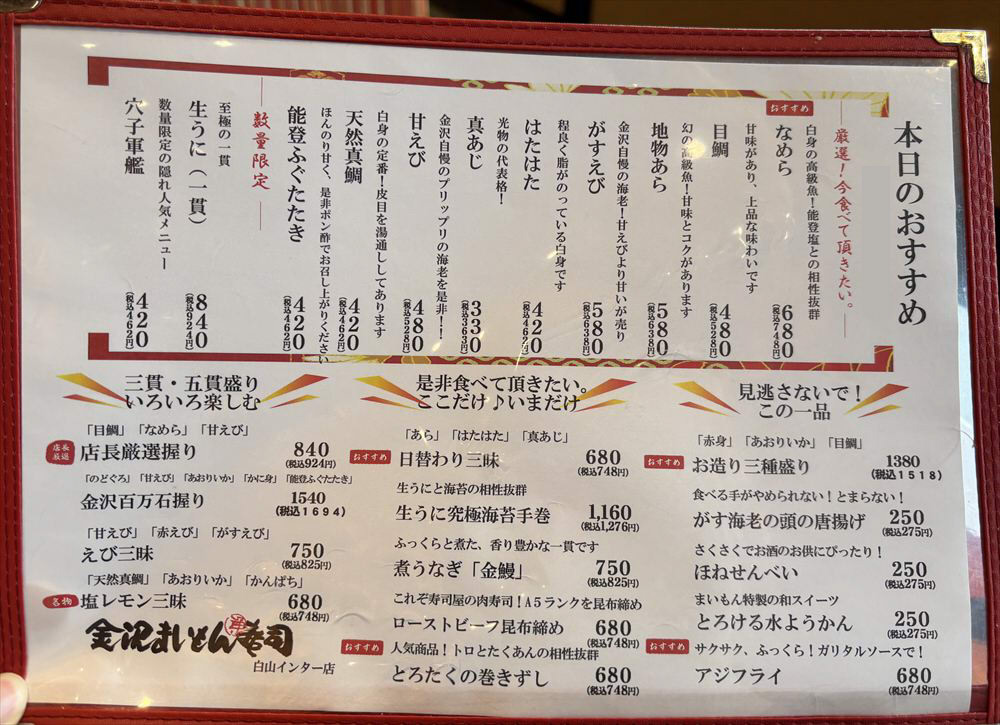 本日のおすすめ
厳選！今食べて頂きたい。
おすすめ
白身の高級魚！能登塩との相性抜群
なめら
680
(税込748円)
甘味があり、上品な味わいです
目鯛
480
(税込528円)
幻の高級魚！甘味とコクがあります
地物あら
580
(税込638円)
金沢自慢の海老！甘えびより甘いが売り
がすえび
580
(税込638円)
程良く脂がのっている白身です
はたはた
420
(税込462円)
光物の代表格！
真あじ
330
(税込363円)
金沢自慢のプリップリの海老を是非！！
甘えび
480
(税込528円)
白身の定番！皮目を湯通ししてあります
天然真鯛
420
(税込462円)
ほんのり甘く、是非ポン酢でお召し上がりください
能登ふぐたたき
420
(税込462円)
数量限定
至極の一貫
生うに（一貫）
840
(税込924円)
数量限定の隠れ人気メニュー
穴子軍艦
420
(税込462円)
三貫・五貫盛り
いろいろ楽しむ
「目鯛」「なめら」「甘えび」
店長厳選
店長厳選握り 840
(税込924円)
「のどぐろ」「甘えび」「あおりいか」「かに身」「能登ふぐたたき」
金沢百万石握り 1540
(税込1694)
「甘えび」「赤えび」「がすえび」
えび三昧 750
(税込825円)
「天然真鯛」「あおりいか」「かんぱち」
名物
塩レモン三昧 680
(税込748円)
金沢まいもん寿司
白山インター店
是非食べて頂きたい。
ここだけ♪いまだけ
「あら」「はたはた」「真あじ」
おすすめ
日替わり三昧 680
(税込748円)
生うにと海苔の相性抜群
生うに究極海苔手巻 1,160
(税込1,276円)
ふっくらと煮た、香り豊かな一貫です
煮うなぎ「金鰻」 750
(税込825円)
これぞ寿司屋の肉寿司！A5ランクを昆布締め
ローストビーフ昆布締め 680
(税込748円)
おすすめ
人気商品！トロとたくあんの相性抜群
とろたくの巻きずし 680
(税込748円)
見逃さないで！
この一品
「赤身」「あおりいか」「目鯛」
おすすめ
お造り三種盛り 1380
(税込1518)
食べる手がやめられない！とまらない！
がす海老の頭の唐揚げ 250
(税込275円)
さくさくでお酒のお供にぴったり！
ほねせんべい 250
(税込275円)
まいもん特製の和スイーツ
とろける水ようかん 250
(税込275円)
おすすめ
サクサク、ふっくら！ガリタルソースで！
アジフライ 680
(税込748円)